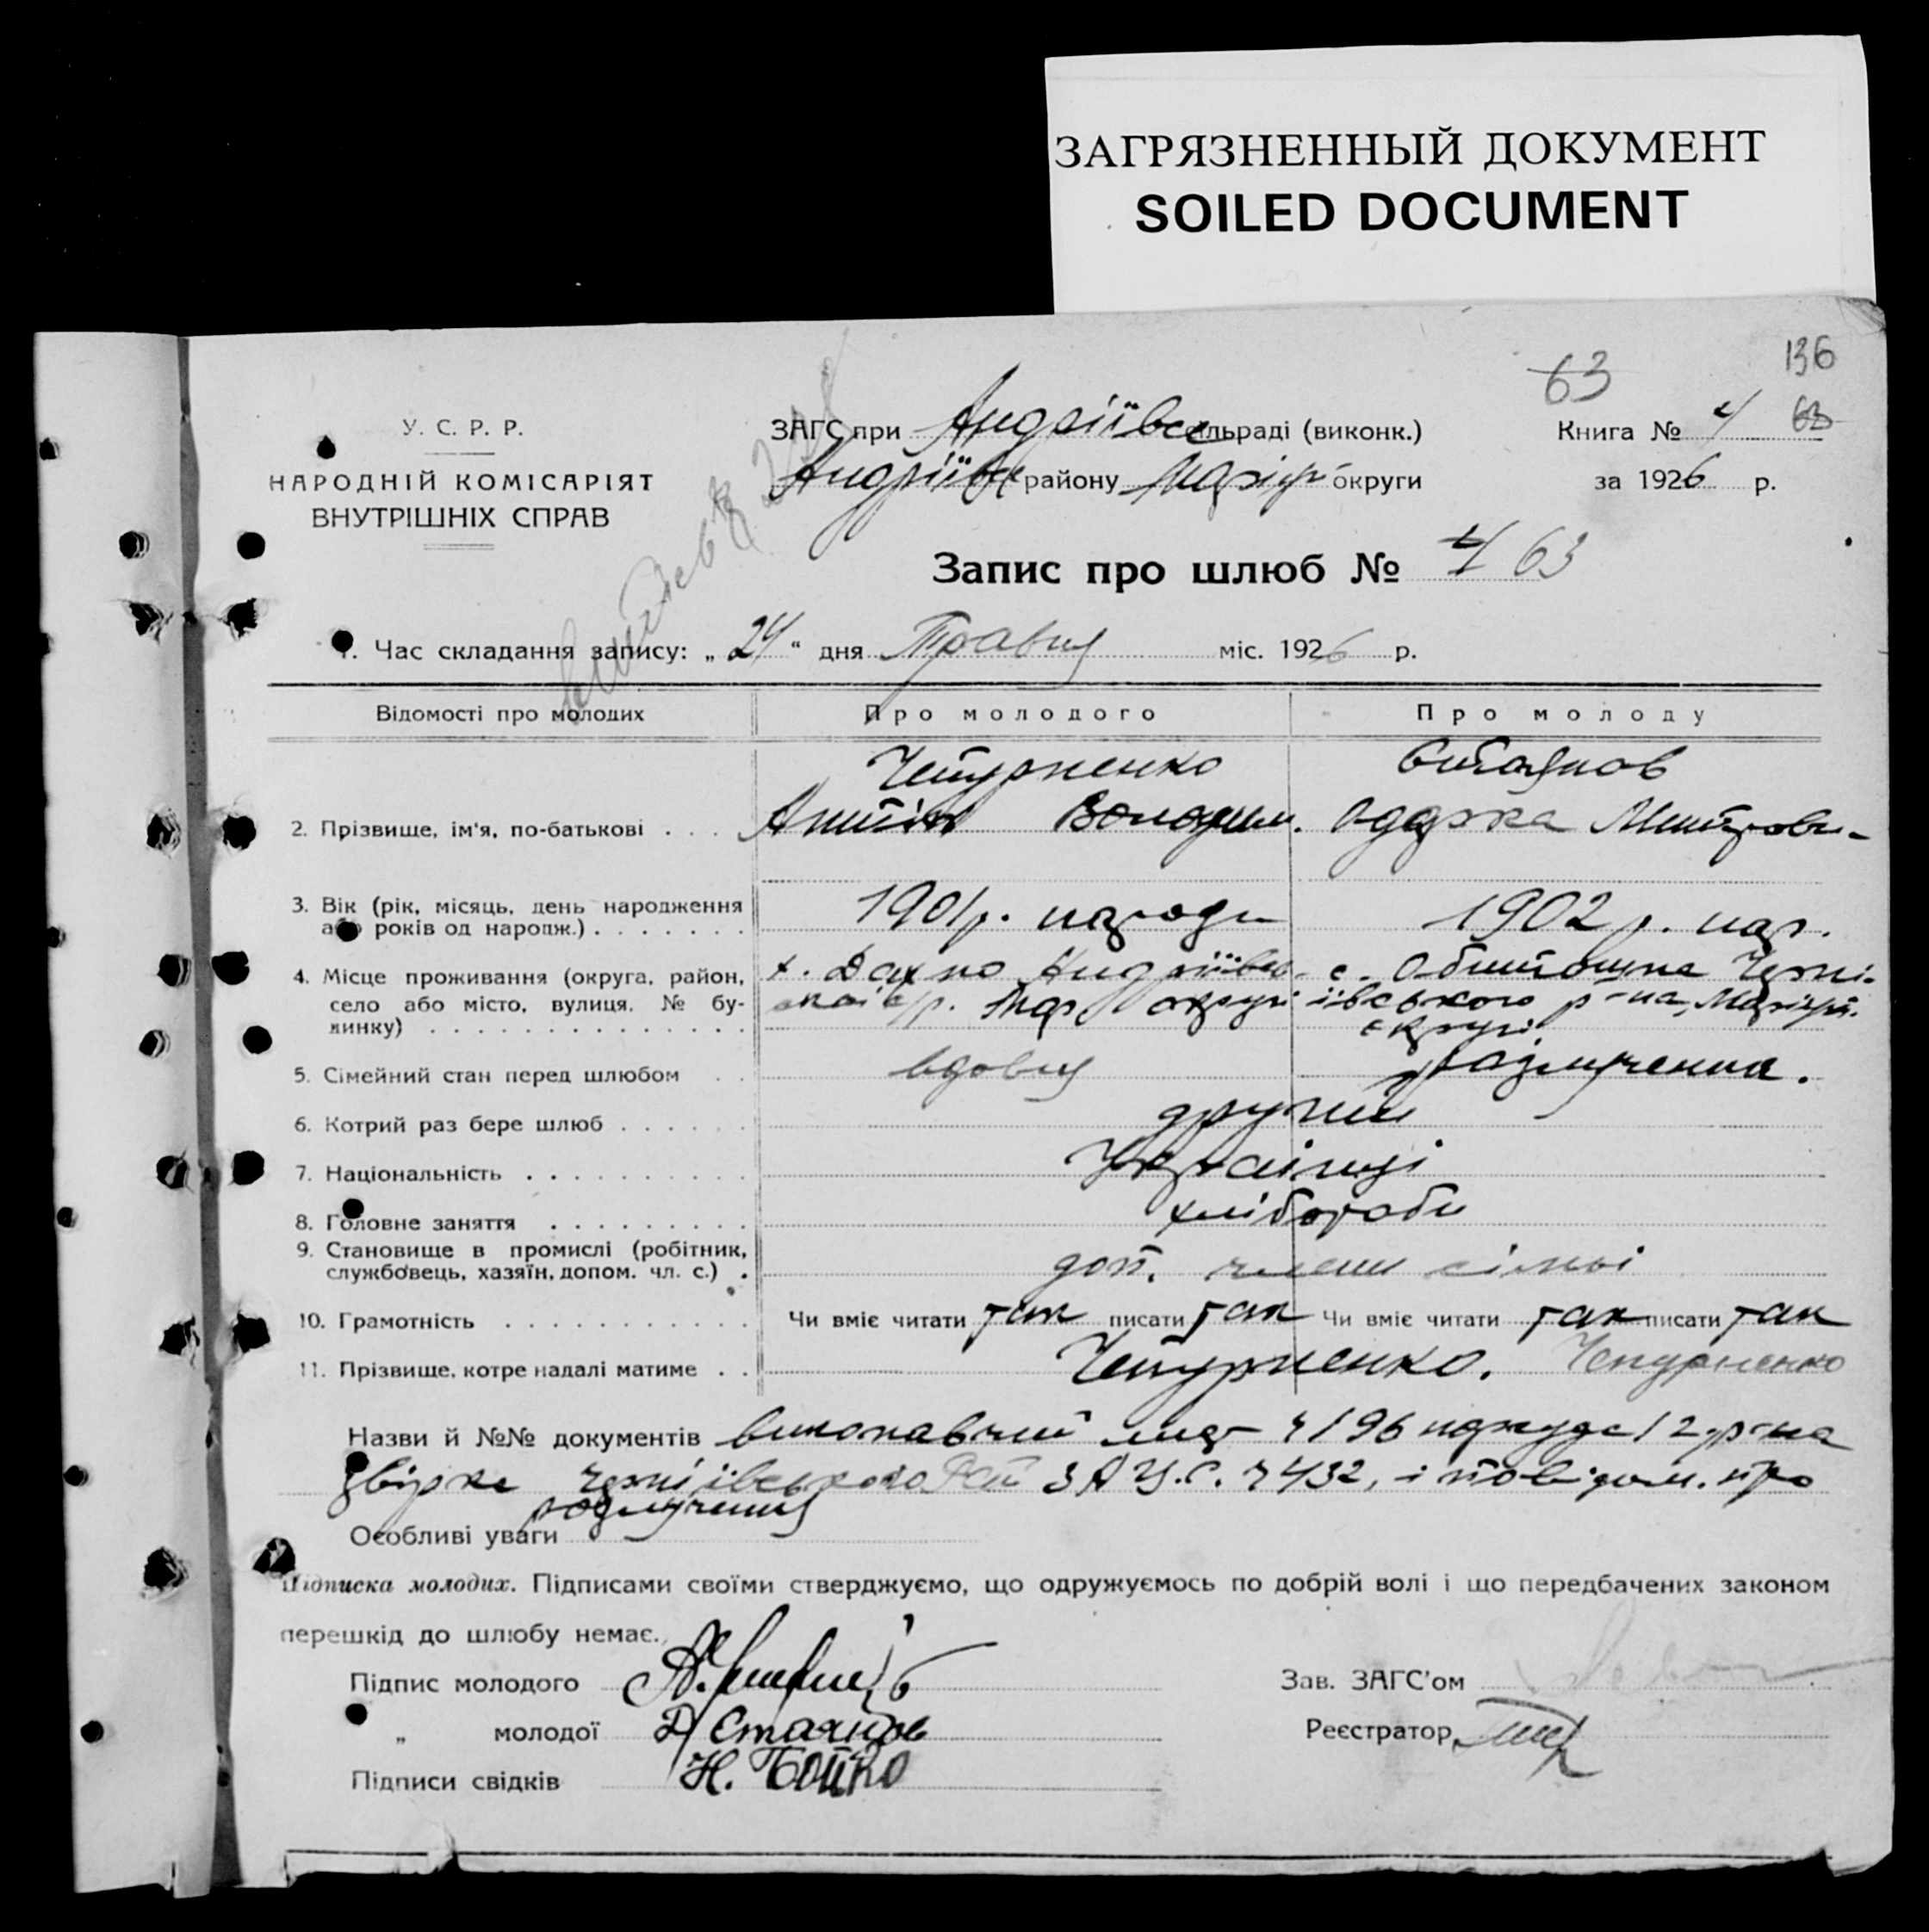 ЗАГРЯЗНЕННЫЙ ДОКУМЕНТ
SOILED DOCUMENT
63
136
У. С. Р. Р.
НАРОДНІЙ КОМІСАРІЯТ
ВНУТРІШНІХ СПРАВ
ЗАГС при Андріївс ільраді (виконк.)
Книга № 4 63
Андріївс району Маріуп округи
за 1926 р.
Запис про шлюб № 4 63
1. Час складання запису: „ 24 “ дня Травня міс. 1926 р.
Відомості про молодих
Про молодого
Про молоду
2. Прізвище, ім'я, по-батькові
Чепурненко
Антін Володим.
Стоянов
Одарка Митрови-
3. Вік (рік, місяць, день народження
або років од народж.)
1901 р. народж
1902 р. нар.
4. Місце проживання (округа, район,
село або місто, вулиця, № бу-
динку)
х. Дахно Андріївсь-
кої с/р. Мар. округи
с. Обиточна Черні-
гівського р-на, Маріуп.
округи
5. Сімейний стан перед шлюбом
вдовця
розлучення.
6. Котрий раз бере шлюб
другий
7. Національність
Українці
8. Головне заняття
хлібороби
9. Становище в промислі (робітник,
службовець, хазяїн, допом. чл. с.)
доп. члени сімьї
10. Грамотність
Чи вміє читати так писати так Чи вміє читати так писати так
11. Прізвище, котре надалі матиме
Чепурненко. Чепурненко
Назви й №№ документів виконавчий лист ч 196 нарсуда 12 р-на
Чернігівського ЗАГС. ч 432, і повідом. про
розлучення
Особливі уваги
Підписка молодих. Підписами своїми стверджуємо, що одружуємось по добрій волі і що передбачених законом
перешкід до шлюбу немає.
Підпис молодого
Зав. ЗАГС'ом
„ молодої Д Стоянов
Реєстратор
Підписи свідків Н. Бойко